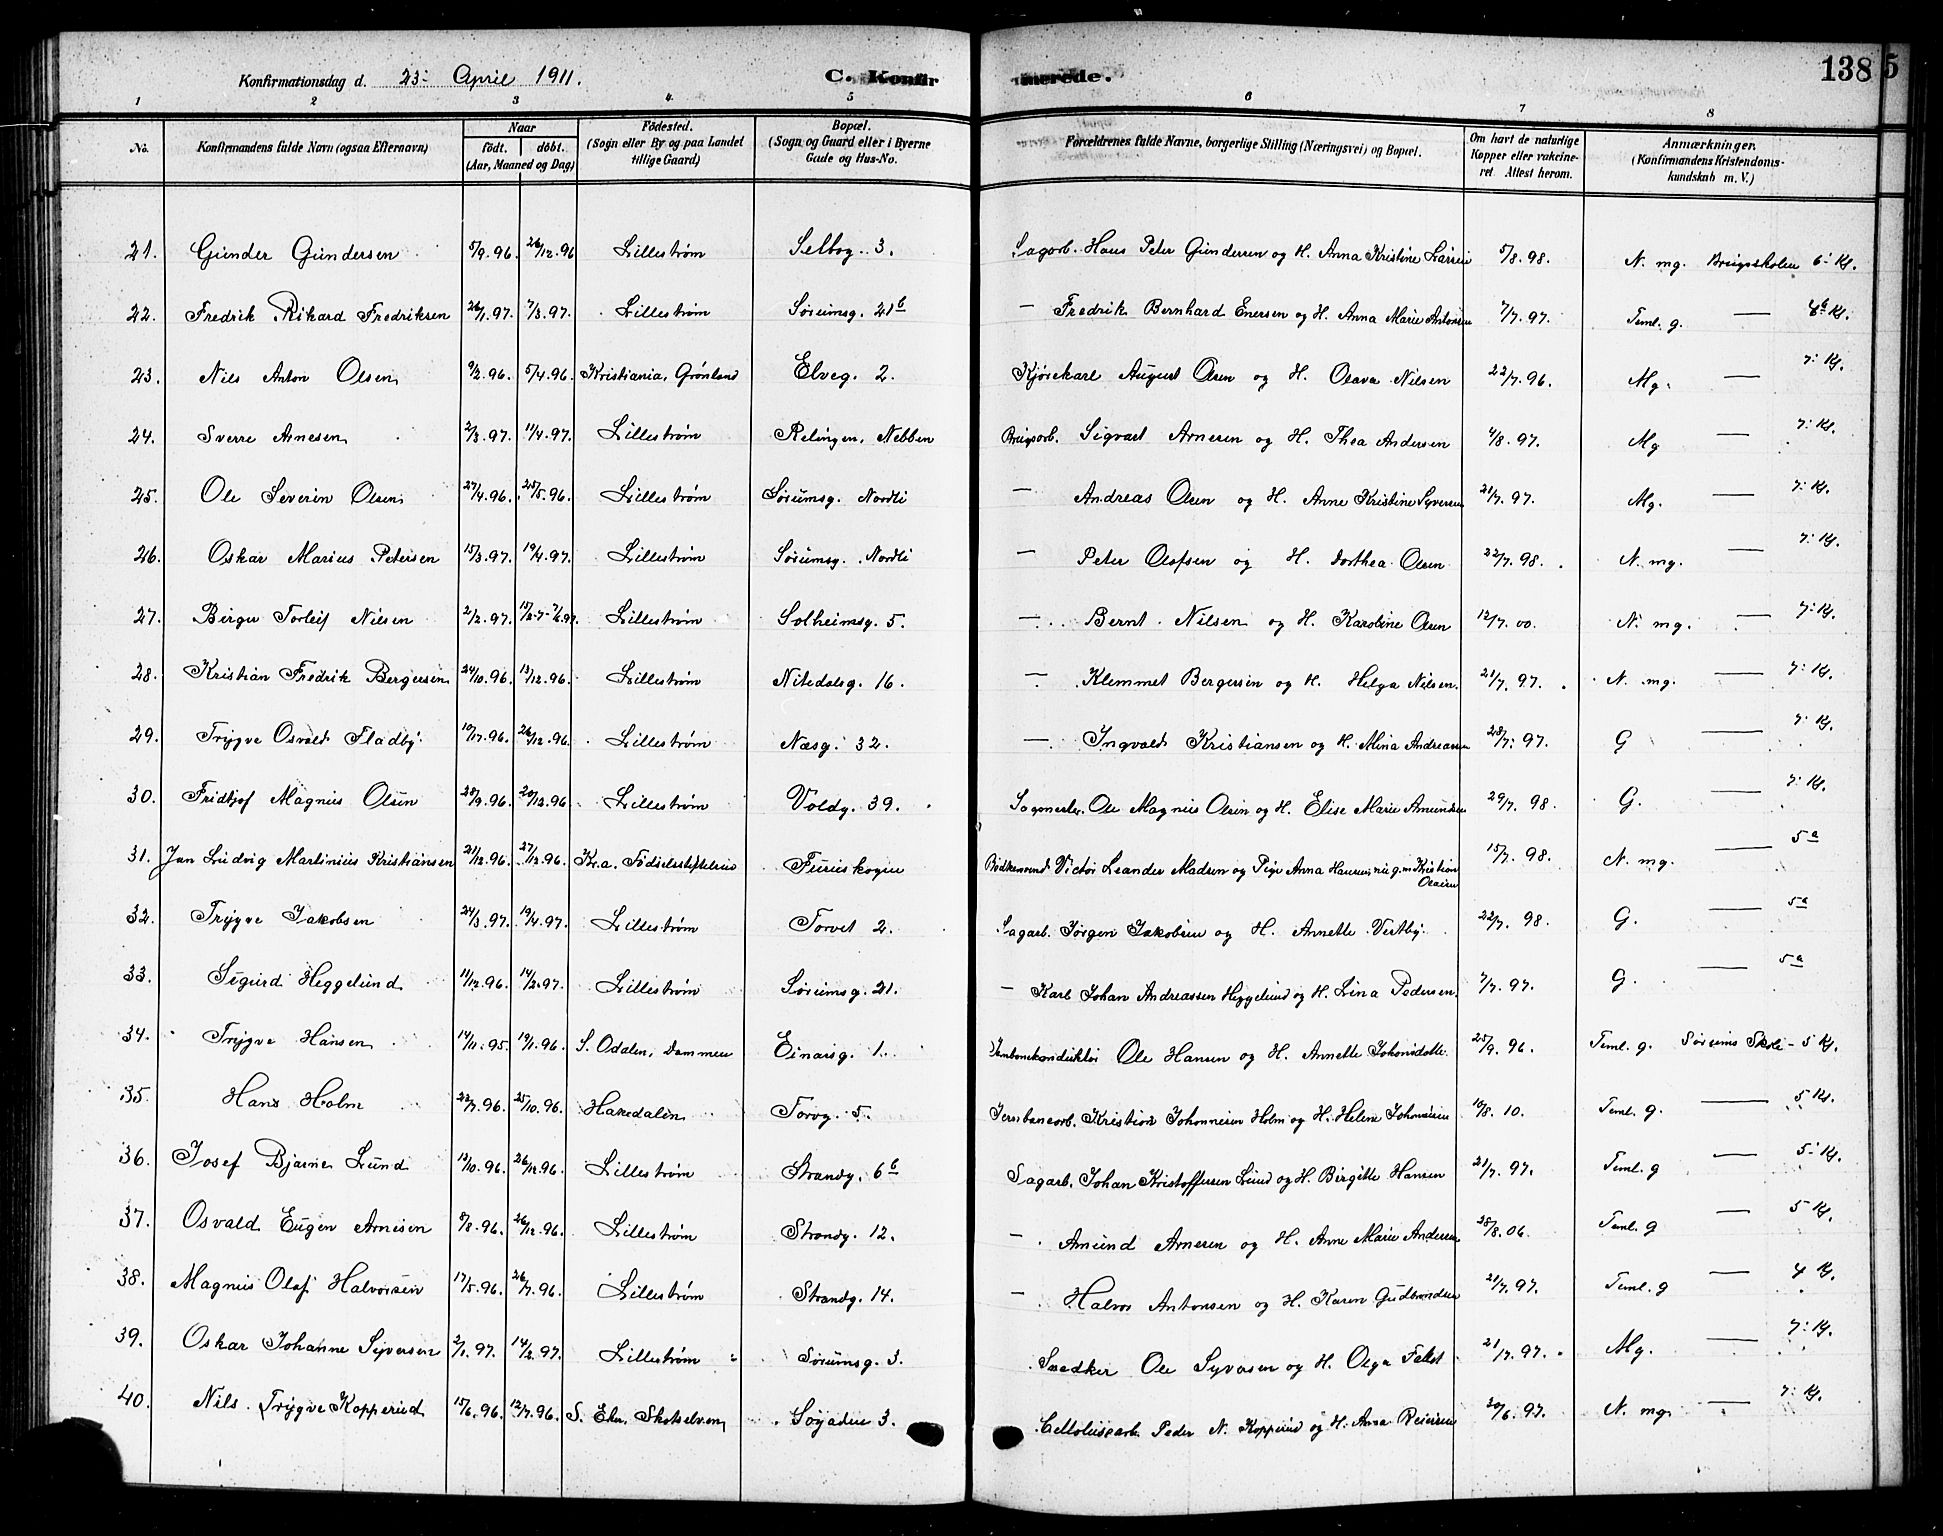 Konfirmationsdag d. 23. April 1911. C. Konfirmerede. 138
1 2 3 4 5 6 7 8
No. Konfirmandens fulde Navn (ogsaa Efternavn) Naar født. døbt. (Aar, Maaned og Dag) Fødested. (Sogn eller By og paa Landet tillige Gaard) Bopæl. (Sogn og Gaard eller i Byerne Gade og Hus-No. Forældrenes fulde Navne, borgerlige Stilling (Næringsvei) og Bopæl. Om havt de naturlige Kopper eller vakcineret. Attest herom. Anmærkninger. (Konfirmandens Kristendomskundskab m. V.)
21. Gunder Gundersen 5/9.96. 26/12.96 Lillestrøm 3. Sagarb. Hans Peter Gundersen og H. Anna Kristine Larsen 5/8.98. N. mg. Brugsskolen 6 Kl.
22. Fredrik Rikard Fredriksen 26/1.97. 7/3.97. Lillestrøm Sørumsg. 21b — Fredrik Bernhard Enersen og H. Anna Marie Antonsen 7/7.97. Teml. g. — Kl.
23. Nils Anton Olsen 9/2.96. 5/4.96. Kristiania, Grønland Elveg. 2. Kjørekarl August Olsen og H. Olava Nilsen 22/7.96. Mg. — 7: Kl.
24. Sverre Arnesen 2/3.97. 11/4.97. Lillestrøm Relingen, Nebben Brugsarb. Sigvart Arnesen og H. Thea Andersen 4/8.97. Mg — 7: Kl.
25. Ole Severin Olsen 27/4.96. 25/5.96. Lillestrøm Sørumsg. Nordli — Andreas Olsen og H. Anne Kristine Syversen 21/7.97. Mg. — 7: Kl.
26. Oskar Marius Petersen 15/3.97. 19/4.97. Lillestrøm Sørumsg. Nordli — Peter Olofsen og H. Dorthea Olsen 22/7.98. N. mg. — 7: Kl.
27. Birger Torleif Nilsen 2/2.97. Lillestrøm Solheimsg. 5. — Bernt Nilsen og H. Karoline Olsen 12/7.00. N. mg. — 7: Kl.
28. Kristian Fredrik Bergersen 24/10.96. 13/12.96. Lillestrøm Nitedalsg. 16. — Klemmet Bergersen og H. Helga Nilsen. 21/7.97. N. mg. — 7: Kl.
29. Trygve Osvald Fladby 26/12.96. Lillestrøm Næsg. 32. — Ingvald Kristiansen og H. Mina Andreassen 28/7.97. G — 7: Kl.
30. Fridtjof Magnus Olsen 28/9.96. 20/12.96 Lillestrøm Voldg. 39. Sagmester Ole Magnus Olsen og H. Elise Marie Amundsen 29/7.98. G. — 7: Kl.
31. Jan Ludvig Martinius Kristiansen 21/12.96. 27/12.96. Kr.a. Fødselsstiftelse Furuskogen Bødkersvend Victor Leander Madsen og Pige Anna Hansen, nu g. m. Kristian Olsen 15/7.98. N. mg. — 5a
32. Trygve Jakobsen 24/3.97. 19/4.97. Lillestrøm Torvet 2. Sagarb. Jørgen Jakobsen og H. Annette Vestby 22/7.98 G. — 5a
33. Sigurd Heggelund 11/12.96. 14/2.97. Lillestrøm Sørumsg. 21. — Karl Johan Andreassen Heggelund og H. Lina Pedersen. 7/7.97. G. — 5a
34. Trygve Hansen 14/11.95. 19/1.96. S. Odalen, Dammen Einarsg. 1. Jernbanekonduktør Ole Hansen og H. Annette Johansdatter 25/9.96. Teml. g. Sørums Skole — 5 Kl.
35. Hans Holm 22/7.96. 25/10.96. Hakedalen Torvg. 5. Jernbanearb. Kristian Johannesen Holm og H. Helene Johansen 10/8.10. Teml. g. — 5 Kl.
36. Josef Bjarne Lund 12/10.96. 26/12.96. Lillestrøm Strandg. 6b Sagarb. Johan Kristoffersen Lund og H. Birgitte Hansen 21/7.97. Teml. g — 5: Kl.
37. Osvald Eugen Arnesen 8/8.96. 26/12.96. Lillestrøm Strandg. 12. — Amund Arnesen og H. Anne Marie Andersen 28/8.06. Teml. g — 5 Kl.
38. Magnus Olaf Halvorsen 17/5.96. 26/7.96. Lillestrøm Strandg. 14. — Halvor Antonsen og H. Karen Gudbrandsen 21/7.97. Teml. g — 4 Kl.
39. Oskar Johanne Syversen 2/1.97. 14/2.97. Lillestrøm Sørumsg. 3. Snedker Ole Syversen og H. Olga 21/7.97. Mg. — 7: Kl.
40. Nils Trygve Kopperud 15/6.96. 12/7.96. S. Eker, Skotselven Søgaden 3. Cellulosearb. Peder N. Kopperud og H. Anna Reiersen 20/6.97. N. mg. — 7: Kl.